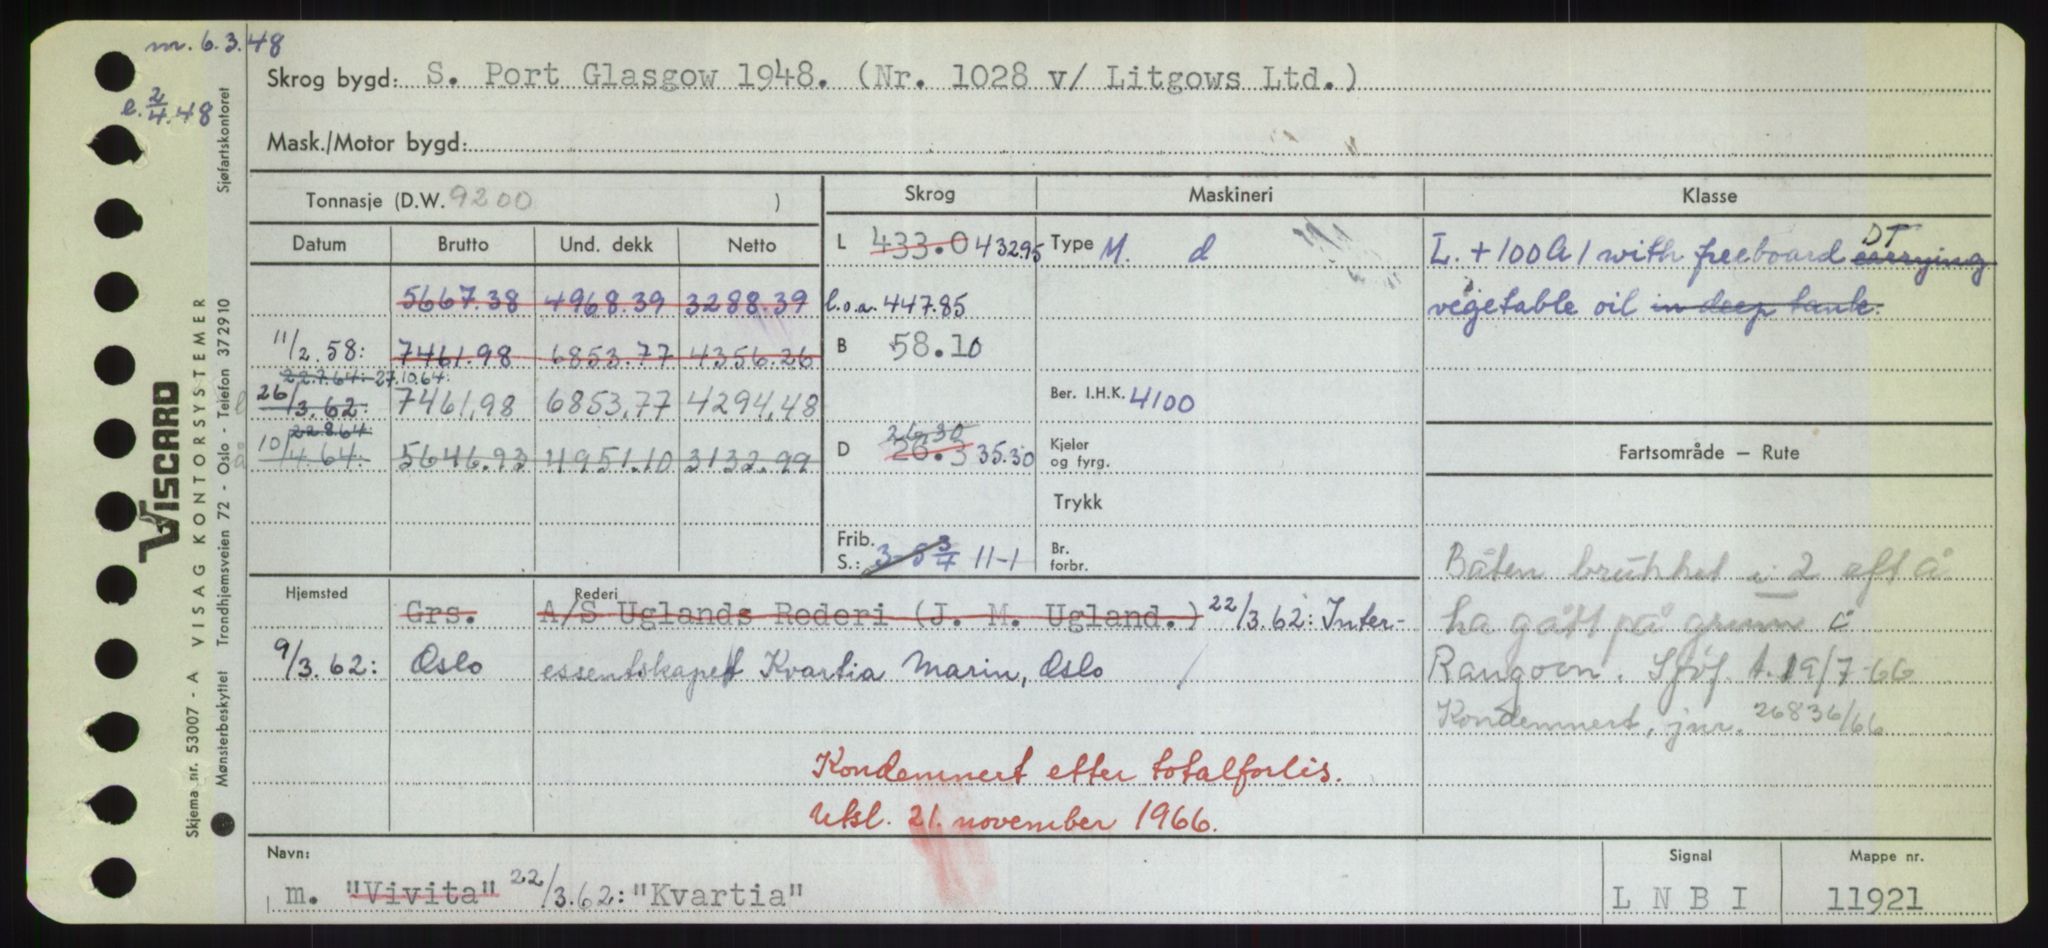 m. 6.3.48
e. 2/4.48
Skrog bygd: S. Port Glasgow 1948. (Nr. 1028 v/ Litgows Ltd.)
Mask./Motor bygd:
Tonnasje (D.W. 9200 )
Skrog
Maskineri
Klasse
Datum Brutto Und. dekk Netto
5667.38 4968.39 3288.39
11/2.58: 7461.98 6853.77 4356.26
22.7.64: 27.10.64:
26/3.62: 7461,98 6853,77 4294,48
22.8.64:
10/4.64: 5646.93 4951.10 3132.99
L 433.0 432.95
l.o.a. 447.85
B 58.10
26.30
D 26.3 35.30
Frib.
S.: 3-8 3/4 11-1
Type M. d
Ber. I.H.K. 4100
Kjeler
og fyrg.
Trykk
Br.
forbr.
DT
L. + 100 A 1 with freeboard carrying
vegetable oil in deep tank.
Fartsområde – Rute
Båten brukket i 2 eft å
ha gått på grunn i
Rangoon. Sjøf. t. 19/7-66
Kondemnert, jnr. 26836/66
Hjemsted Rederi
Grs. A/S Uglands Rederi (J. M. Ugland.) 22/3.62: Inter-
9/3.62: Oslo essentskapet Kvartia Marin, Oslo
Kondemnert etter totalforlis.
Utsl. 21. november 1966.
Navn:
m. "Vivita" 22/3.62: "Kvartia"
Signal
L N B I
Mappe nr.
11921
VISCARD
Skjema nr. 53007 - A VISAG KONTORSYSTEMER
Mønsterbeskyttet Trondhjemsveien 72 - Oslo - Telefon 372910 Sjøfartskontoret